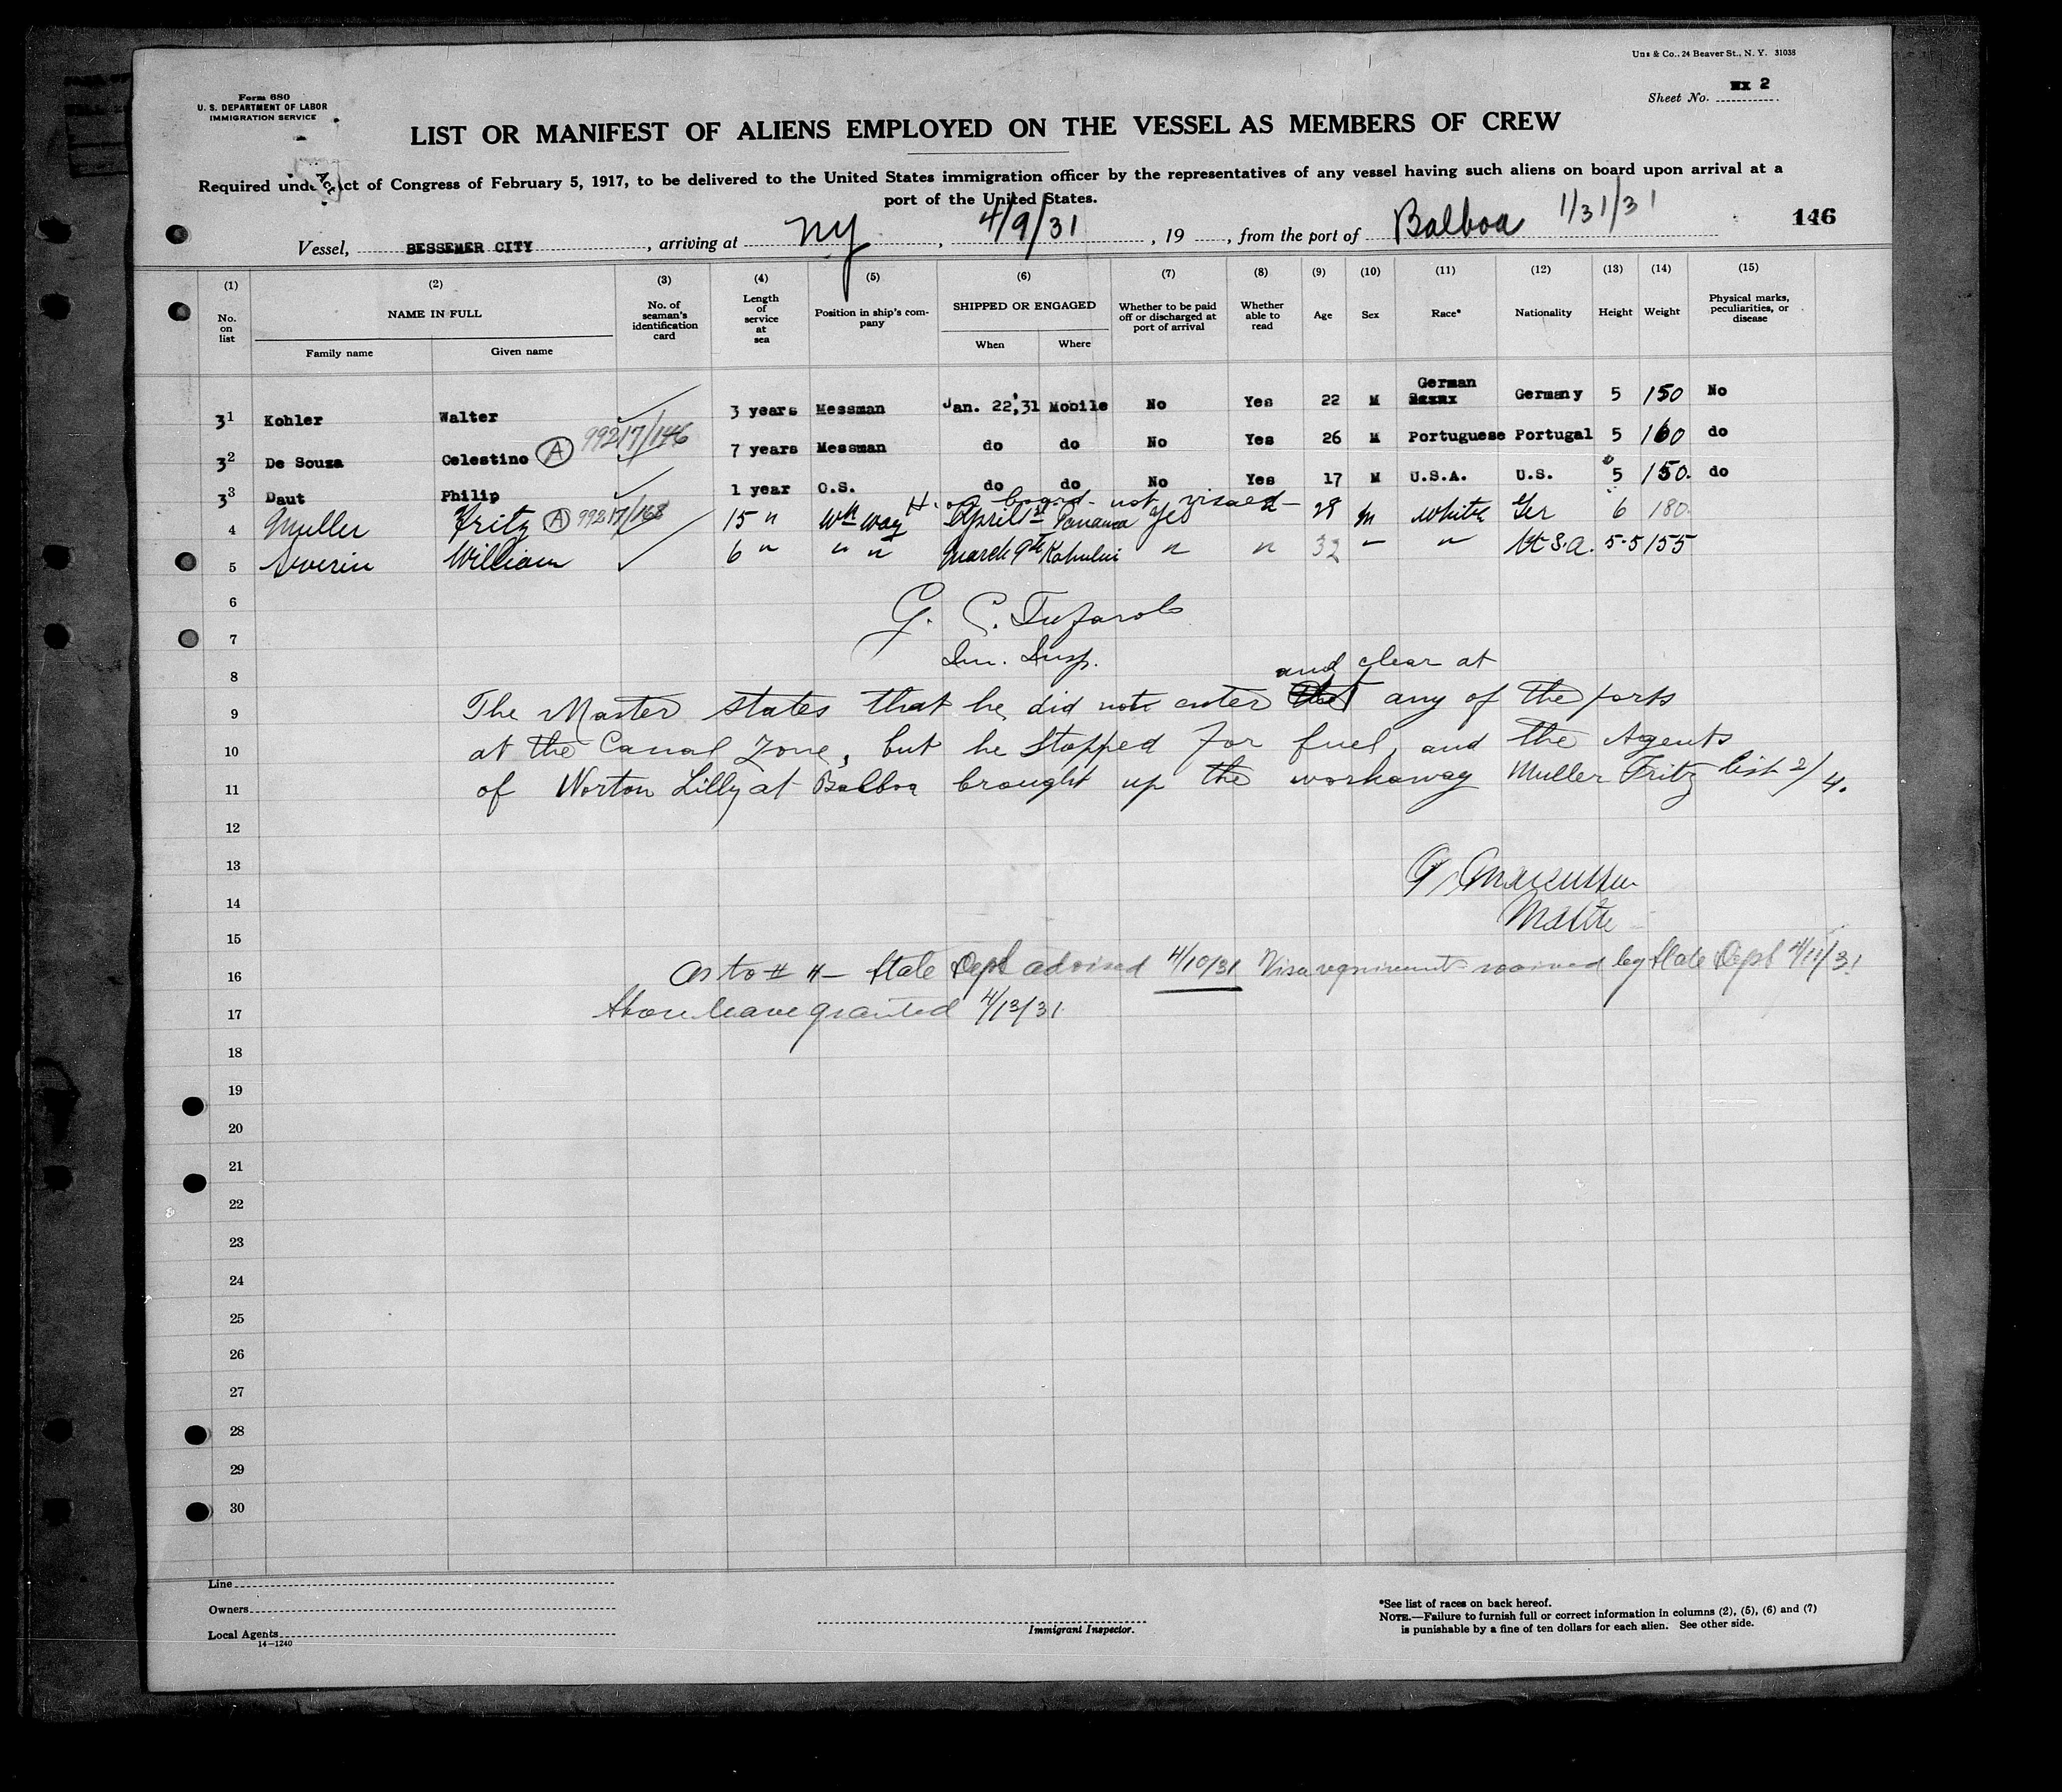 Uns & Co., 24 Beaver St., N. Y. 31038
Form 680
U. S. DEPARTMENT OF LABOR
IMMIGRATION SERVICE
Sheet No. 2
LIST OR MANIFEST OF ALIENS EMPLOYED ON THE VESSEL AS MEMBERS OF CREW
Required under Act of Congress of February 5, 1917, to be delivered to the United States immigration officer by the representatives of any vessel having such aliens on board upon arrival at a
port of the United States.
Vessel, BESSEMER CITY, arriving at NY, 4/9/31, 19, from the port of Balboa 1/31/31
146
(1) (2) (3) (4) (5) (6) (7) (8) (9) (10) (11) (12) (13) (14) (15)
No. on list NAME IN FULL Family name Given name No. of seaman's identification card Length of service at sea Position in ship's company SHIPPED OR ENGAGED When Where Whether to be paid off or discharged at port of arrival Whether able to read Age Sex Race* Nationality Height Weight Physical marks, peculiarities, or disease
31 Kohler Walter 3 years Messman Jan. 22,'31 Mobile No Yes 22 M German Germany 5 150 No
32 De Souza Celestino A 99217/146 7 years Messman do do No Yes 26 M Portuguese Portugal 5 160 do
33 Daut Philip 1 year O.S. do do No Yes 17 M U.S.A. U.S. 5 150. do
on board - not visaed -
4 Muller Fritz A 99217/168 15 " Wk way April 1st Panama Yes 28 M White Ger 6 180
5 Severin William 6 " " " March 9th Kahului " " 32 - " U.S.A. 5-5 155
6
G. C.
7
Im. Insp.
8
and clear at
9 The Master states that he did not enter any of the ports
10 at the Canal Zone, but he stopped for fuel, and the Agents
11 of Norton Lilly at Balboa brought up the workaway Muller Fritz list 2/4.
12
13
14
Master
15
16 As to # 4 - State Dept advised 4/10/31 Visa requirements waived by State Dept 4/11/31
17 Shore leave granted 4/13/31
18
19
20
21
22
23
24
25
26
27
28
29
30
Line
Owners
Local Agents
14-1240
Immigrant Inspector.
*See list of races on back hereof.
NOTE.—Failure to furnish full or correct information in columns (2), (5), (6) and (7)
is punishable by a fine of ten dollars for each alien. See other side.